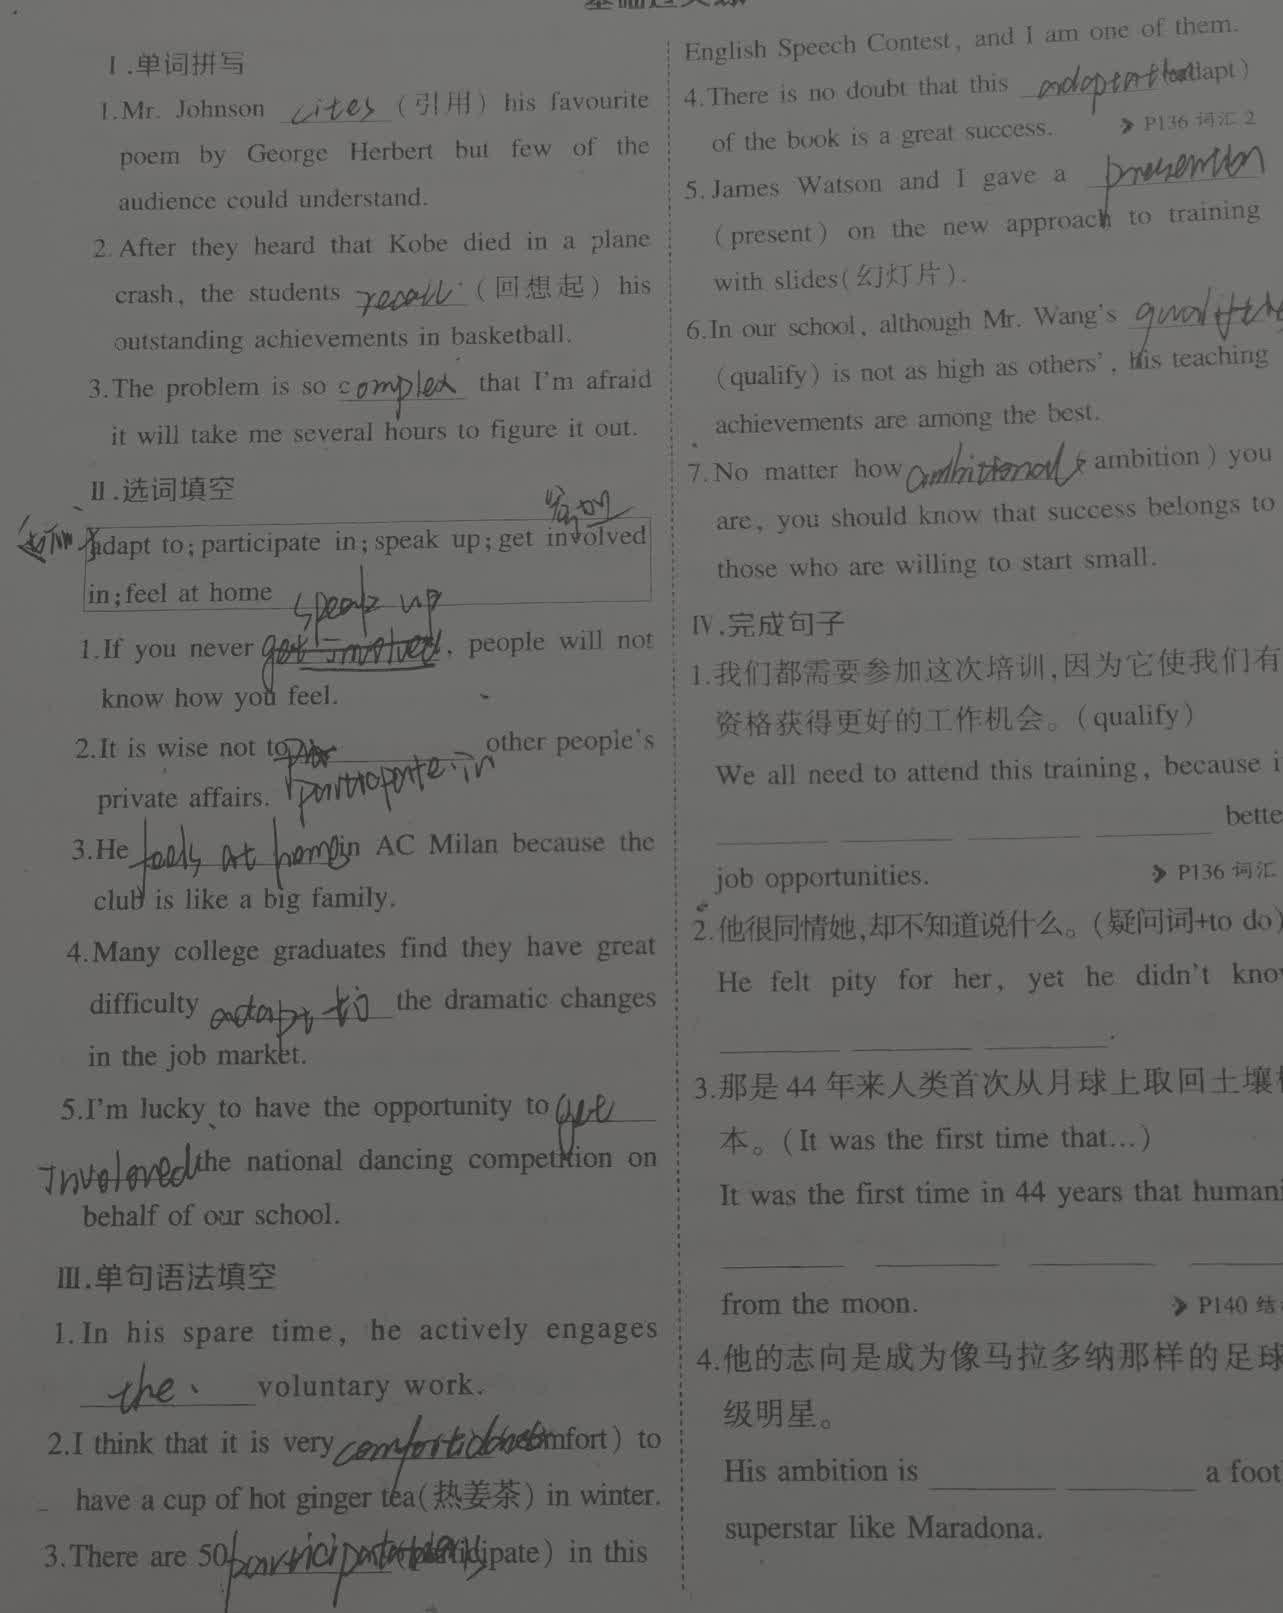 Ⅰ.单词拼写
1.Mr. Johnson cites (引用) his favourite
poem by George Herbert but few of the
audience could understand.
2. After they heard that Kobe died in a plane
crash, the students recall (回想起) his
outstanding achievements in basketball.
3.The problem is so complex that I'm afraid
it will take me several hours to figure it out.
Ⅱ.选词填空
adapt to; participate in; speak up; get involved
in; feel at home
speak up
1.If you never get involved, people will not
know how you feel.
2.It is wise not to other people's
private affairs. participate in
3.He feels at home in AC Milan because the
club is like a big family.
4.Many college graduates find they have great
difficulty adapt to the dramatic changes
in the job market.
5.I'm lucky to have the opportunity to get
involoved the national dancing competition on
behalf of our school.
Ⅲ.单句语法填空
1.In his spare time, he actively engages
the voluntary work.
2.I think that it is very (comfort) to
have a cup of hot ginger tea(热姜茶) in winter.
3.There are 50 (participate) in this
English Speech Contest, and I am one of them.
4.There is no doubt that this (adapt)
of the book is a great success. P136 词汇 2
5.James Watson and I gave a
(present) on the new approach to training
with slides(幻灯片).
6.In our school, although Mr. Wang's
(qualify) is not as high as others', his teaching
achievements are among the best.
7.No matter how ambitional (ambition) you
are, you should know that success belongs to
those who are willing to start small.
Ⅳ.完成句子
1.我们都需要参加这次培训,因为它使我们有
资格获得更好的工作机会。(qualify)
We all need to attend this training, because i
bette
job opportunities. P136 词汇
2.他很同情她,却不知道说什么。(疑问词+to do)
He felt pity for her, yet he didn't kno
.
3.那是 44 年来人类首次从月球上取回土壤
本。(It was the first time that...)
It was the first time in 44 years that human
from the moon. P140 结
4.他的志向是成为像马拉多纳那样的足球
级明星。
His ambition is a foot
superstar like Maradona.